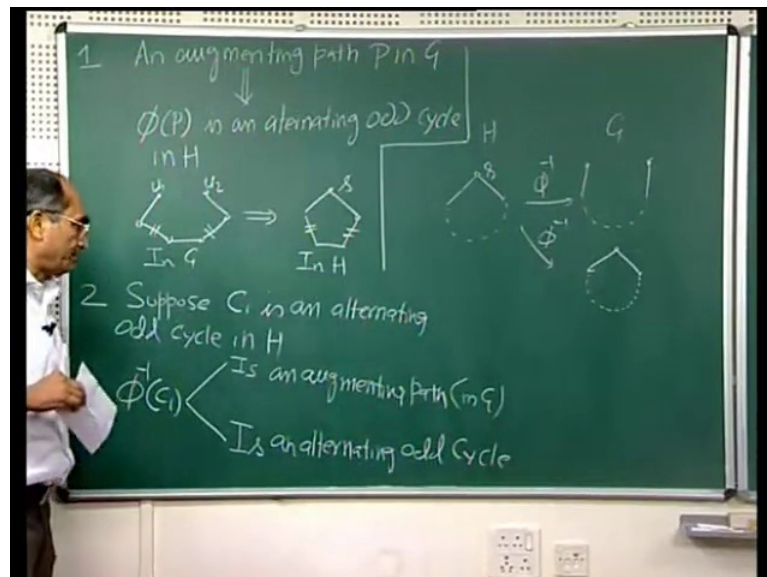 1 An augmenting path P in G
⇓
Ø(P) is an aternating odd cycle
in H
u₁ u₂ ⇒ s
In G In H
H G
s Φ⁻¹
Φ⁻¹
2 Suppose C₁ is an alternating
odd cycle in H
Φ⁻¹(C₁)
Is an augmenting path (in G)
Is an alternating odd Cycle